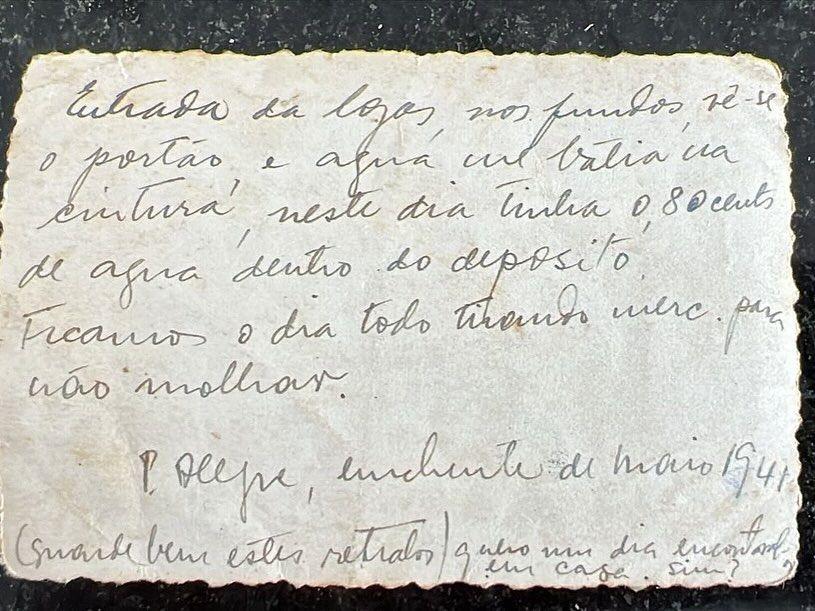 Entrada da lojas, nos fundos, vê-se
o portão, e agua me batia na
cintura, neste dia tinha 0,80 cents
de agua dentro do deposito.
Ficamos o dia todo tirando merc. para
não molhar.
P. Alegre, enchente de Maio 1941
(guarde bem estes retratos) quero um dia
em casa. sim?